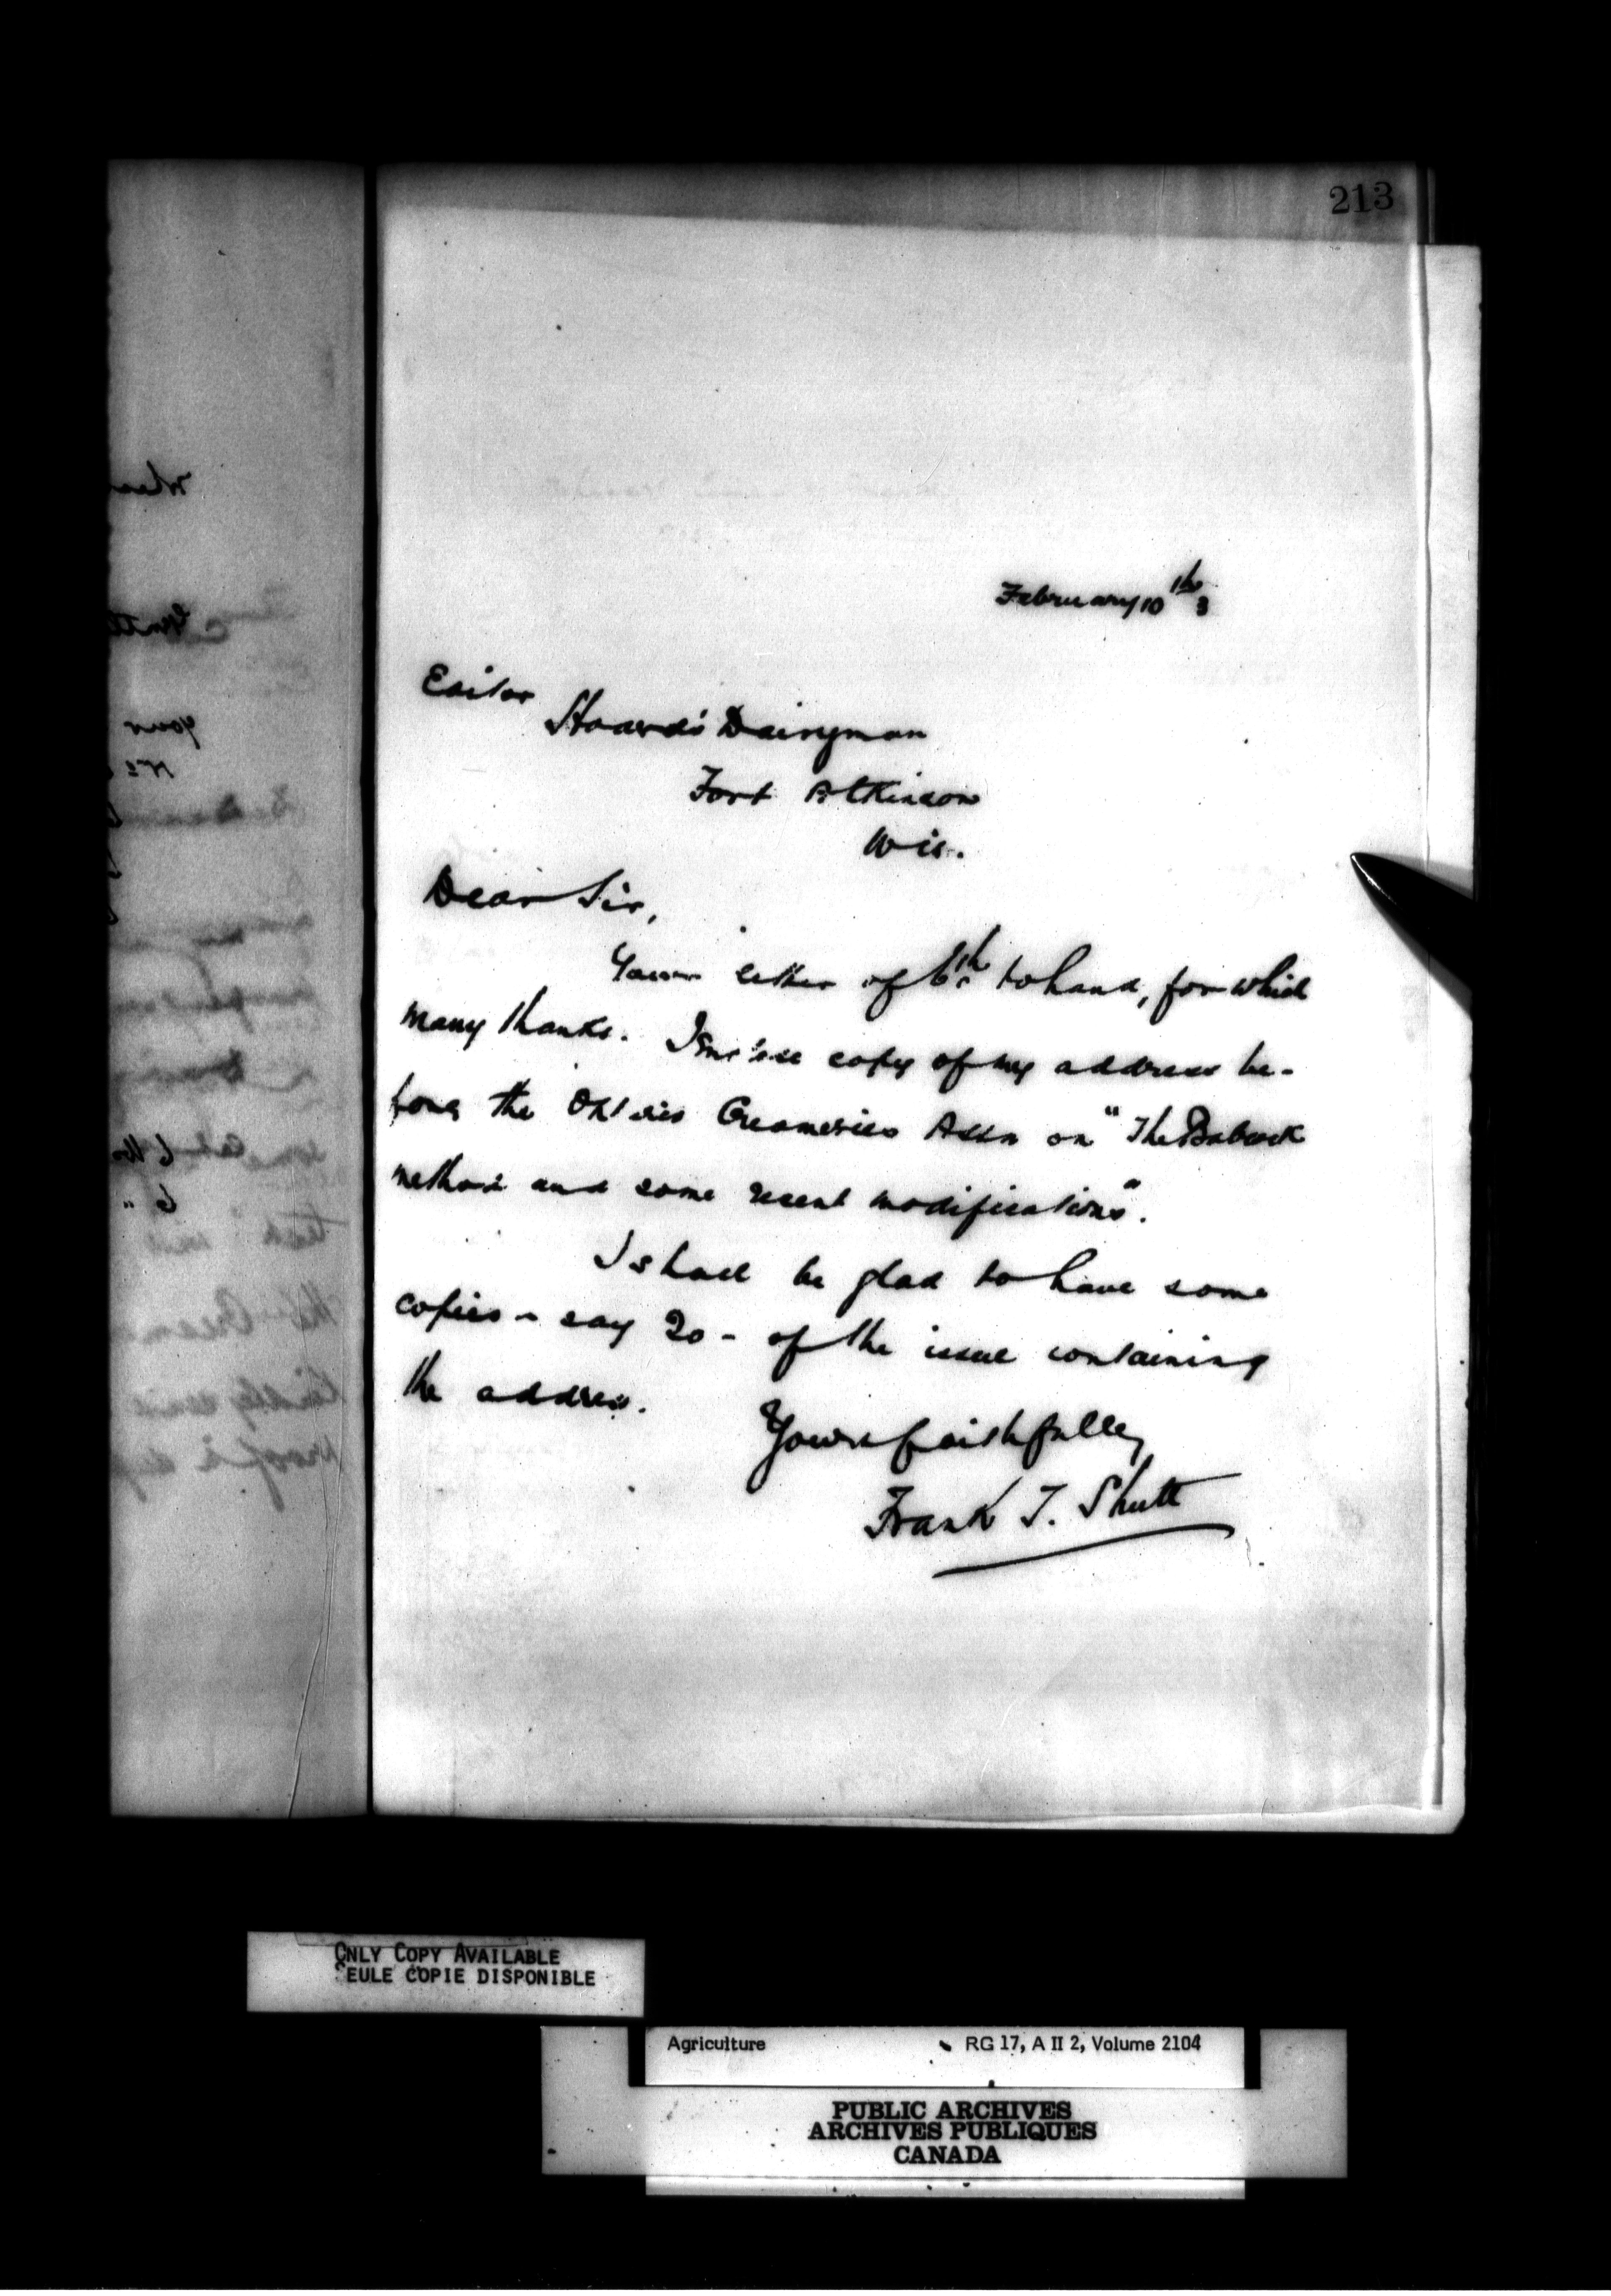 213
February 10th 3
Editor
Hoard's Dairyman
Fort Atkinson
Wis.
Dear Sir,
Your letter of 6th to hand, for which
many thanks. I enclose copy of my address be-
fore the Ontario Creameries Assn on "The Babcock
method and some recent modifications".
I shall be glad to have some
copies - say 20 - of the issue containing
the address.
Yours faithfully
Frank T. Shutt
ONLY COPY AVAILABLE
SEULE COPIE DISPONIBLE
Agriculture RG 17, A II 2, Volume 2104
PUBLIC ARCHIVES
ARCHIVES PUBLIQUES
CANADA